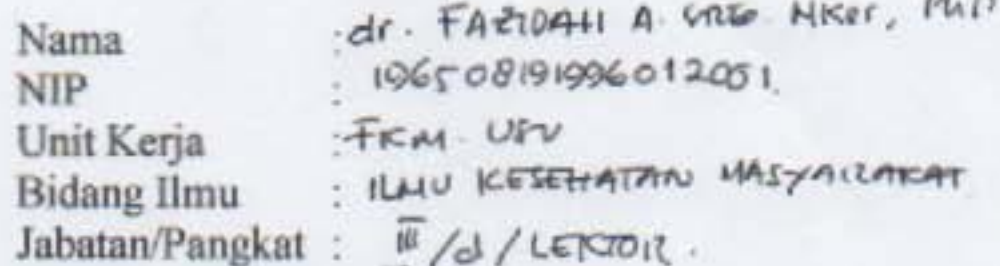 Nama : dr. FAZIDAH A. SREG. MKes, PhD
NIP : 196508191996012001.
Unit Kerja : FKM. USU
Bidang Ilmu : ILMU KESEHATAN MASYARAKAT
Jabatan/Pangkat : III/d/LEKTOR.